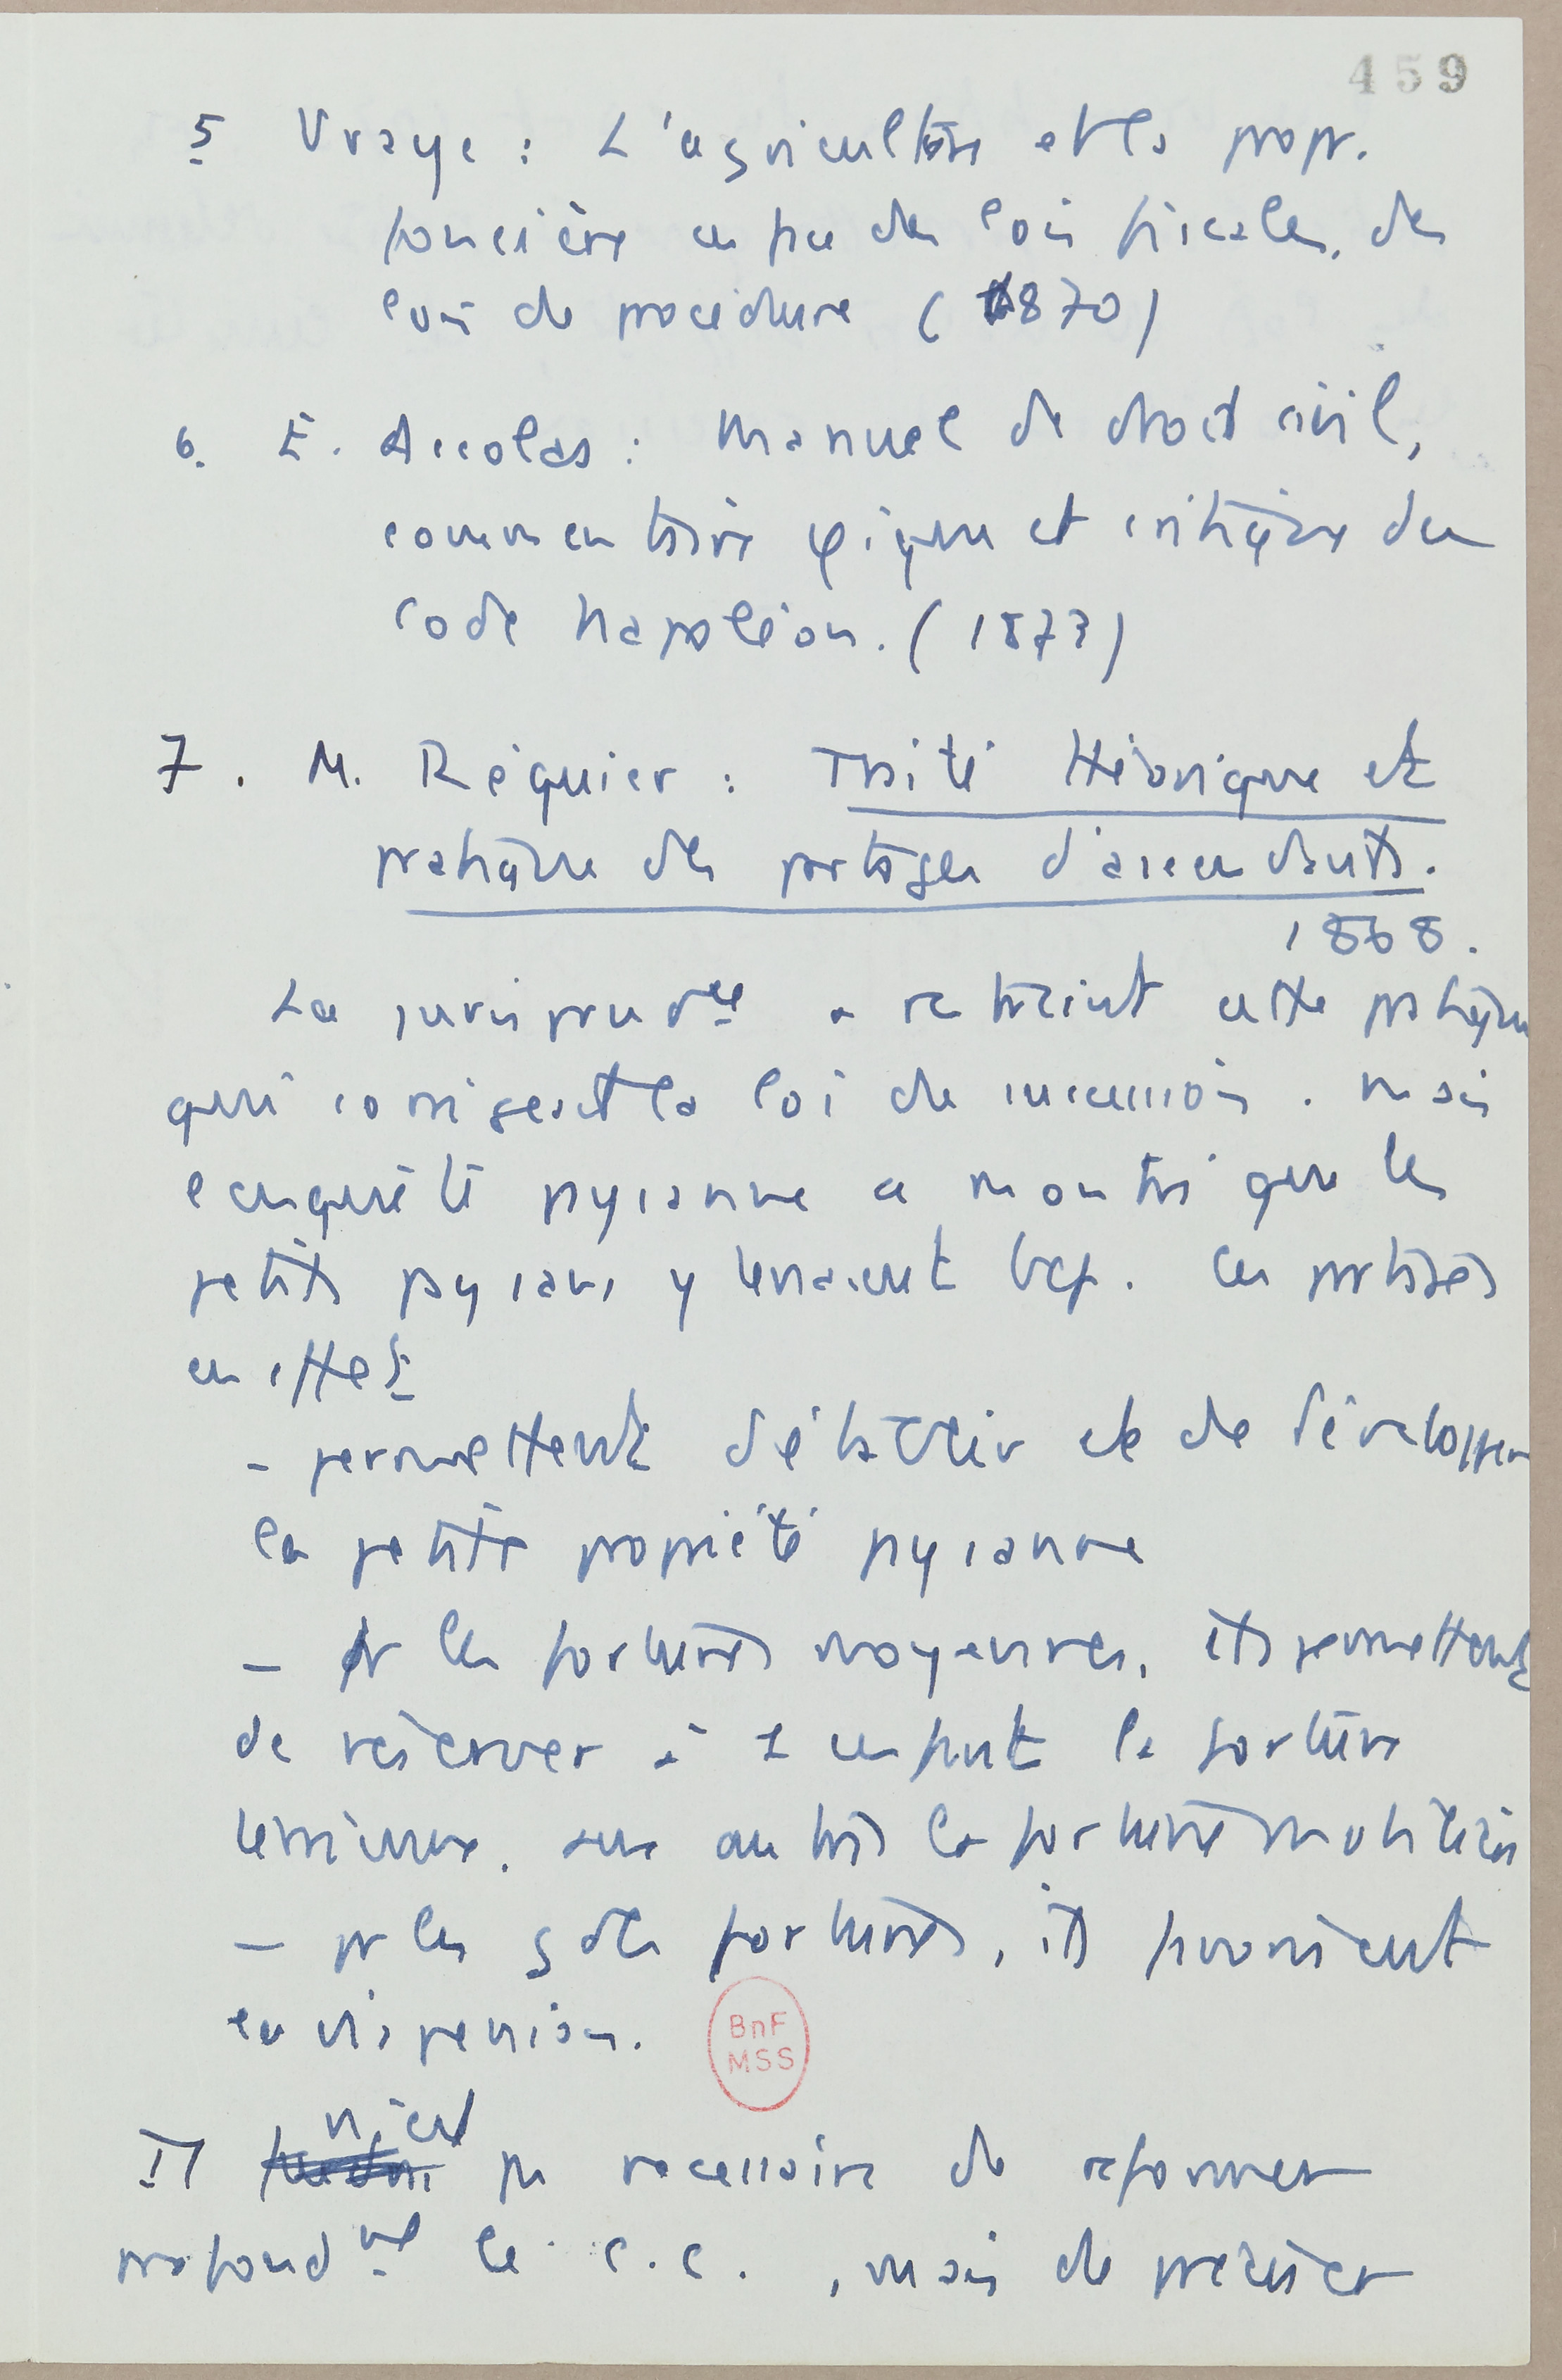 459
5 Vraye : L'agriculture et la propr.
foncière en face des lois fiscales, des
lois de procédure (1870)
6. E. Accolas : Manuel de droit civil,
commentaire φique et critique du
Code Napoléon. (1873)
7. M. Réquier : Traité théorique et
pratique des partages d'ascendants.
1868.
La jurisprudce a restreint cette pratique
qui corrigeait la loi de succession. Mais
enquête paysanne a montré que les
petits paysans y tenaient bcp. Ces partages
en effet
- permettent d'établir et de développer
la petite propriété paysanne
- pr les fortunes moyennes, ils permettent
de réserver à 1 enfant la fortune
terrienne, aux autres la fortune mobilière
- pr les gdes fortunes, ils favorisent
la dispersion.
n'est
Il pas necessaire de reformer
profondmt le C.C., mais de préciser
BnF
MSS